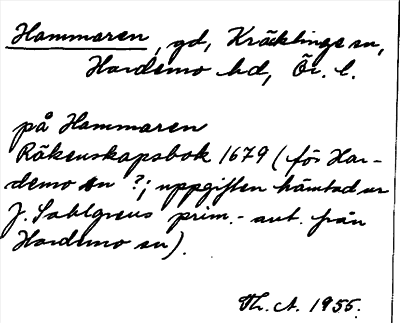 Hammaren, gd, Kräcklinge sn,
Hardemo hd, Ör. l.
på Hammaren
Räkenskapsbok 1679 (för Har-
demo sn ?; uppgiften hämtad ur
J. Sahlgrens prim.- ant. från
Hardemo sn).
Th. A. 1955.